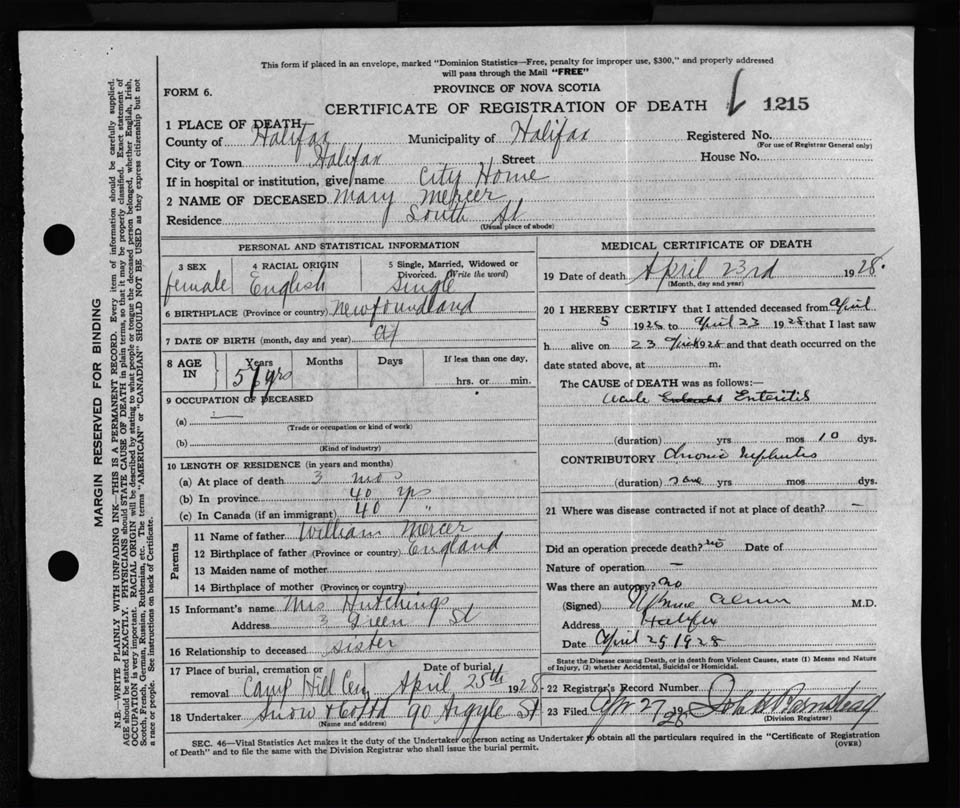 This form if placed in an envelope, marked "Dominion Statistics—Free, penalty for improper use, $300," and properly addressed
will pass through the Mail "FREE"
FORM 6.
PROVINCE OF NOVA SCOTIA
CERTIFICATE OF REGISTRATION OF DEATH 1215
1 PLACE OF DEATH
County of Halifax Municipality of Halifax Registered No.
(For use of Registrar General only)
City or Town Halifax Street House No.
If in hospital or institution, give name City Home
2 NAME OF DECEASED Mary Mercer
Residence South St
(Usual place of abode)
PERSONAL AND STATISTICAL INFORMATION
3 SEX 4 RACIAL ORIGIN 5 Single, Married, Widowed or
Divorced. (Write the word)
female English single
6 BIRTHPLACE (Province or country) Newfoundland
7 DATE OF BIRTH (month, day and year)
8 AGE IN Years Months Days If less than one day,
yrs hrs. or min.
9 OCCUPATION OF DECEASED
(a) —
(Trade or occupation or kind of work)
(b)
(Kind of industry)
10 LENGTH OF RESIDENCE (in years and months)
(a) At place of death 3 mos
(b) In province 40 yrs
(c) In Canada (if an immigrant) 40 "
Parents
11 Name of father William Mercer
12 Birthplace of father (Province or country) England
13 Maiden name of mother
14 Birthplace of mother (Province or country)
15 Informant's name Mrs Hutchings
Address 3 Green St
16 Relationship to deceased sister
17 Place of burial, cremation or Date of burial
removal Camp Hill Cem April 25th 1928
18 Undertaker Snow & Co Ltd 90 Argyle St
(Name and address)
MEDICAL CERTIFICATE OF DEATH
19 Date of death April 23rd 1928.
(Month, day and year)
20 I HEREBY CERTIFY that I attended deceased from April
5 1928 to April 23 1928 that I last saw
h alive on 23 April 1928 and that death occurred on the
date stated above, at m.
The CAUSE of DEATH was as follows:—
Acute Enteritis
(duration) yrs mos 10 dys.
CONTRIBUTORY Chronic Nephritis
(duration) yrs mos. dys.
21 Where was disease contracted if not at place of death? —
Did an operation precede death? no Date of
Nature of operation —
Was there an autopsy? no
(Signed) M.D.
Address Halifax
Date April 25, 1928
State the Disease causing Death, or in death from Violent Causes, state (1) Means and Nature
of Injury, (2) whether Accidental, Suicidal or Homicidal.
22 Registrar's Record Number
23 Filed Apr 27 1928 John A Barnstead
(Division Registrar)
SEC. 46—Vital Statistics Act makes it the duty of the Undertaker or person acting as Undertaker to obtain all the particulars required in the "Certificate of Registration
of Death" and to file the same with the Division Registrar who shall issue the burial permit.
(OVER)
MARGIN RESERVED FOR BINDING
N.B.—WRITE PLAINLY WITH UNFADING INK—THIS IS A PERMANENT RECORD. Every item of information should be carefully supplied.
AGE should be stated EXACTLY. PHYSICIANS should STATE CAUSE OF DEATH in plain terms, so that it may be properly classified. Exact statement of
OCCUPATION is very important. RACIAL ORIGIN will be described by stating to what people or tongue the deceased person belonged, whether English, Irish,
Scotch, French, German, Russian, Ruthenian, etc. The terms "AMERICAN" or "CANADIAN" SHOULD NOT BE USED as they express citizenship but not
a race or people. See instructions on back of Certificate.